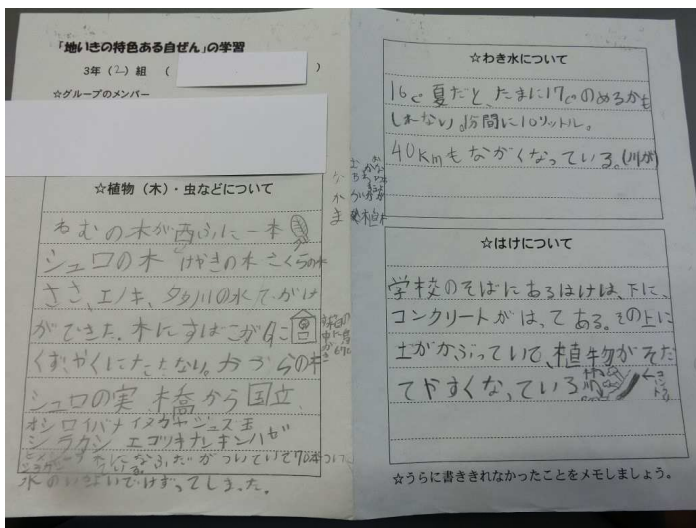 「地いきの特色ある自ぜん」の学習
3年（2）組 （ ）
☆グループのメンバー
☆植物（木）・虫などについて
ねむの木が西ふに一本
シュロの木 けやきの木 さくらの木
ささ、エノキ、タタ川の水でがけ
ができた。木にすばこが
くすやくにたたない。かづらの木
シュロの実 橋から国立
オシロイバナ
シラカシ エゴノキ キンハギ
ふだがついていて70本
水のいきおいでけずってしまった。
☆わき水について
16℃ 夏だと、たまに17℃のめるかも
しれない。1分間に10リットル。
40Kmもながくなっている。(川が)
☆はけについて
学校のそばにあるはけは、下に、
コンクリートがはってある。その上に
土がかぶっていて、植物がそだ
てやすくなっている
☆うらに書ききれなかったことをメモしましょう。